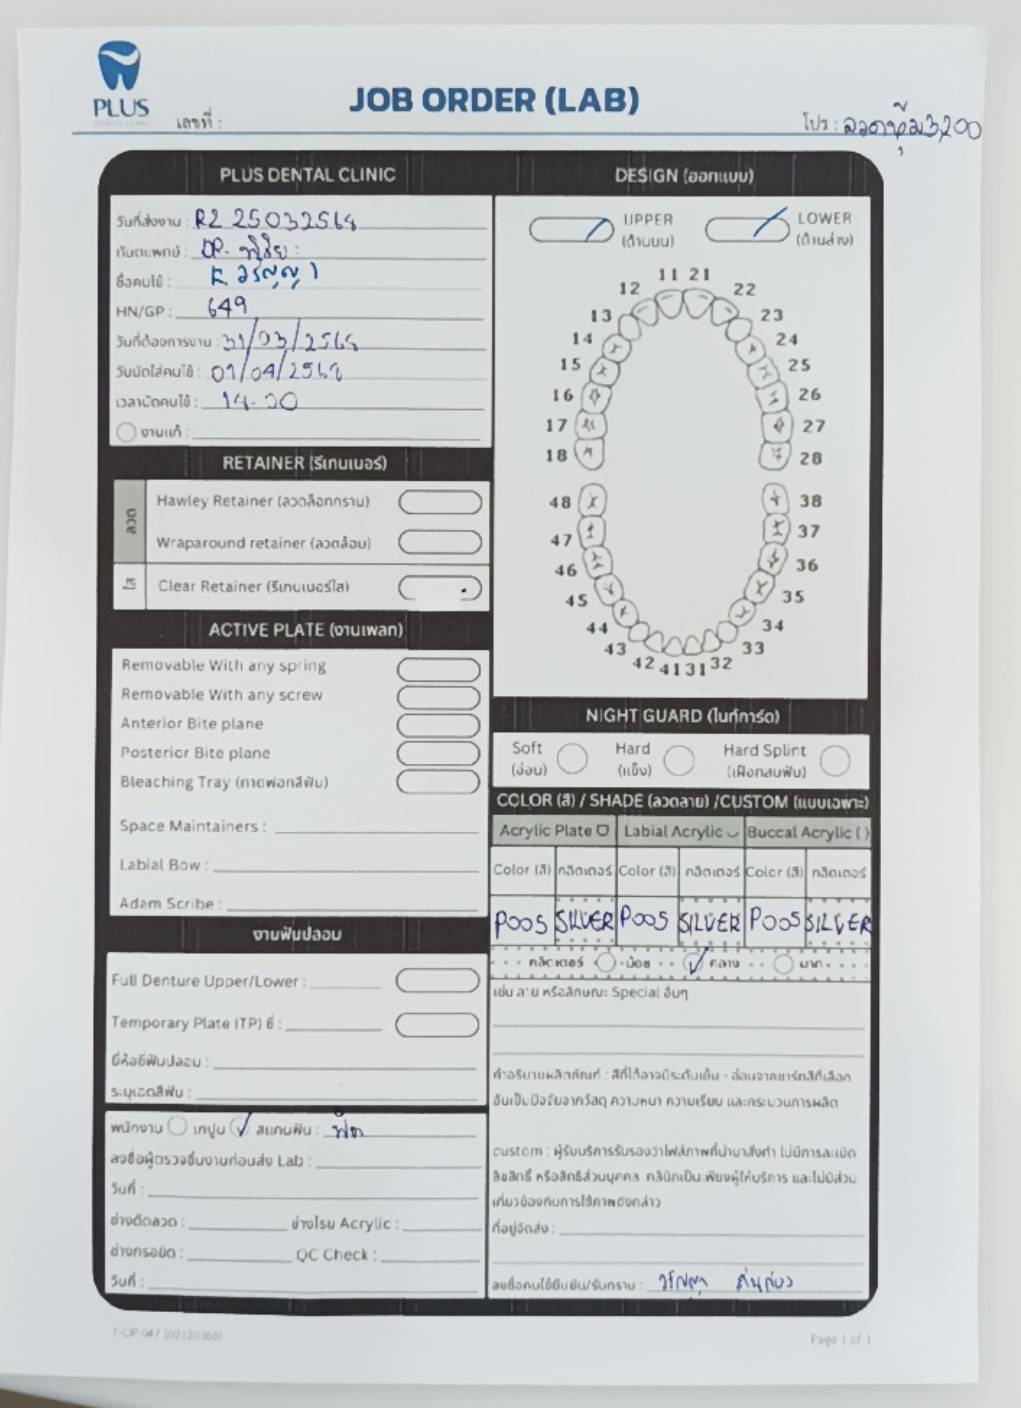 PLUS
JOB ORDER (LAB)
เลขที่ :
โปร : ลวดหุ้ม 3,200
PLUS DENTAL CLINIC
วันที่ส่งงาน : R2 25032568
ทันตแพทย์ : DR.
ชื่อคนไข้ : K
HN/GP : 649
วันที่ต้องการงาน : 31/03/2568
วันนัดใส่คนไข้ : 01/04/2568
เวลานัดคนไข้ : 14.00
งานแก้ :
RETAINER (รีเทนเนอร์)
ลวด
Hawley Retainer (ลวดล็อกกราม)
Wraparound retainer (ลวดล้อม)
ใส
Clear Retainer (รีเทนเนอร์ใส)
ACTIVE PLATE (งานเพลท)
Removable With any spring
Removable With any screw
Anterior Bite plane
Posterior Bite plane
Bleaching Tray (ถาดฟอกสีฟัน)
Space Maintainers :
Labial Bow :
Adam Scribe :
งานฟันปลอม
Full Denture Upper/Lower :
Temporary Plate (TP) ซี่ :
ยี่ห้อซี่ฟันปลอม :
ระบุเฉดสีฟัน :
พนักงาน เทปูน ✓ สแกนฟัน :
ลงชื่อผู้ตรวจชิ้นงานก่อนส่ง Lab :
วันที่ :
ช่างดัดลวด : ช่างโรย Acrylic :
ช่างกรอขัด : QC Check :
วันที่ :
DESIGN (ออกแบบ)
UPPER (ด้านบน)
LOWER (ด้านล่าง)
11 21
12 22
13 23
14 24
15 25
16 26
17 27
18 28
48 38
47 37
46 36
45 35
44 34
43 33
42 41 31 32
NIGHT GUARD (ไนท์การ์ด)
Soft (อ่อน)
Hard (แข็ง)
Hard Splint (เฝือกสบฟัน)
COLOR (สี) / SHADE (ลวดลาย) /CUSTOM (แบบเฉพาะ)
Acrylic Plate Labial Acrylic Buccal Acrylic ( )
Color (สี) กลิตเตอร์ Color (สี) กลิตเตอร์ Color (สี) กลิตเตอร์
P005 SILVER P005 SILVER P005 SILVER
กลิตเตอร์ น้อย ✓ กลาง มาก
เช่น ลาย หรือลักษณะ Special อื่นๆ
คำอธิบายผลิตภัณฑ์ : สีที่ได้อาจมีระดับเข้ม - อ่อนจากชาร์ทสีที่เลือก
อันเป็นปัจจัยจากวัสดุ ความหนา ความเรียบ และกระบวนการผลิต
custom : ผู้รับบริการรับรองว่าไฟล์ภาพที่นำมาสั่งทำ ไม่มีการละเมิด
ลิขสิทธิ์ หรือสิทธิส่วนบุคคล คลินิกเป็นเพียงผู้ให้บริการ และไม่มีส่วน
เกี่ยวข้องกับการใช้ภาพดังกล่าว
ที่อยู่จัดส่ง :
ลงชื่อคนไข้ยืนยัน/รับทราบ :
Page 1 of 1